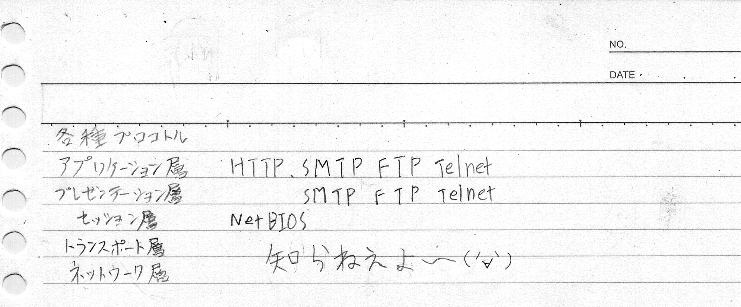 NO.
DATE
各種プロコトル
アプリケーション層 HTTP. SMTP FTP Telnet
プレゼンテーション層 SMTP FTP Telnet
セッション層 NetBIOS
トランスポート層
知らねえよ〜('∀')
ネットワーク層